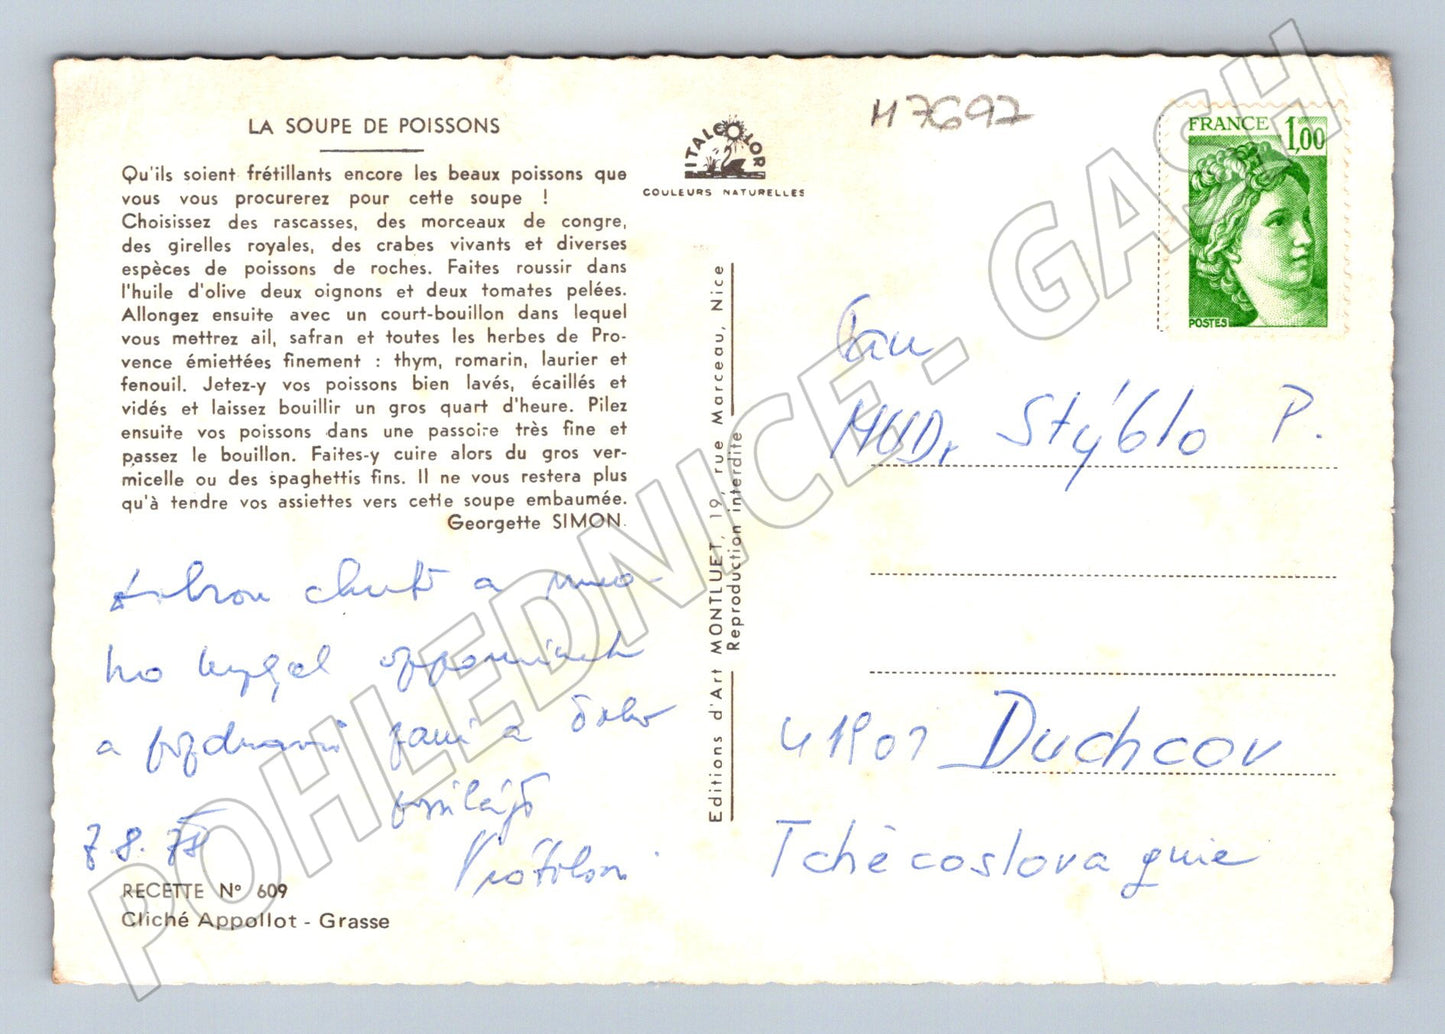 LA SOUPE DE POISSONS
Qu'ils soient frétillants encore les beaux poissons que
vous vous procurerez pour cette soupe !
Choisissez des rascasses, des morceaux de congre,
des girelles royales, des crabes vivants et diverses
espèces de poissons de roches. Faites roussir dans
l'huile d'olive deux oignons et deux tomates pelées.
Allongez ensuite avec un court-bouillon dans lequel
vous mettrez ail, safran et toutes les herbes de Pro-
vence émiettées finement : thym, romarin, laurier et
fenouil. Jetez-y vos poissons bien lavés, écaillés et
vidés et laissez bouillir un gros quart d'heure. Pilez
ensuite vos poissons dans une passoire très fine et
passez le bouillon. Faites-y cuire alors du gros ver-
micelle ou des spaghettis fins. Il ne vous restera plus
qu'à tendre vos assiettes vers cette soupe embaumée.
Georgette SIMON.
dobrou chuť a mno-
ho
a
7.8.78
RECETTE N° 609
Cliché Appollot - Grasse
ITALCOLOR
COULEURS NATURELLES
Editions d'Art MONTLUET, 19, rue Marceau, Nice
Reproduction interdite
H7697
FRANCE 1,00
POSTES
Pan
MUDr Stýblo P.
41901 Duchcov
Tchécoslovaquie
POHLEDNICE - GASH